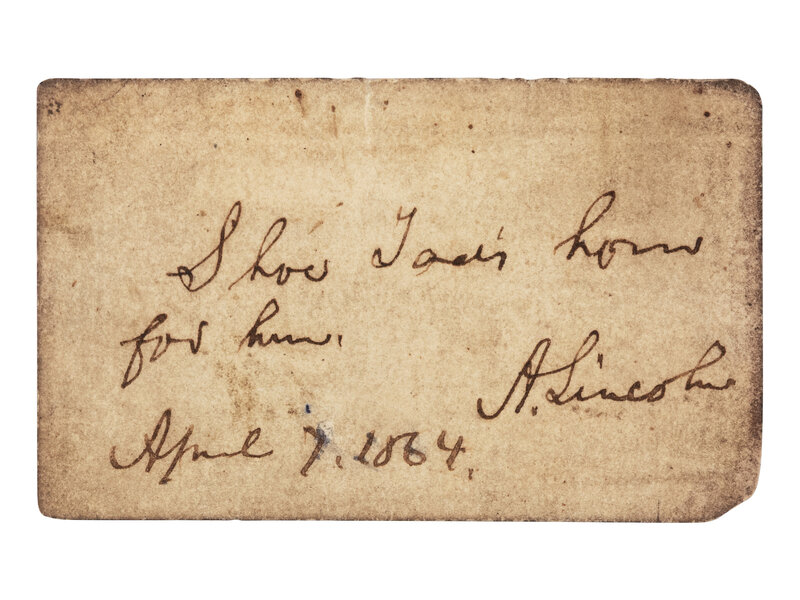 Shoe Tad's horse
for him.
A. Lincoln
April 7, 1864.